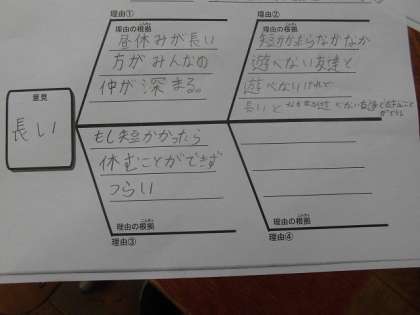 理由①
理由の根拠
昼休みが長い
方がみんなの
仲が深まる。
理由②
理由の根拠
短かかったらなかなか
遊べない友達と
遊べないけれど
長いとなかなか遊べない友達と
意見
長い
もし短かかったら
休むことができず
つらい
理由の根拠
理由③
理由の根拠
理由④